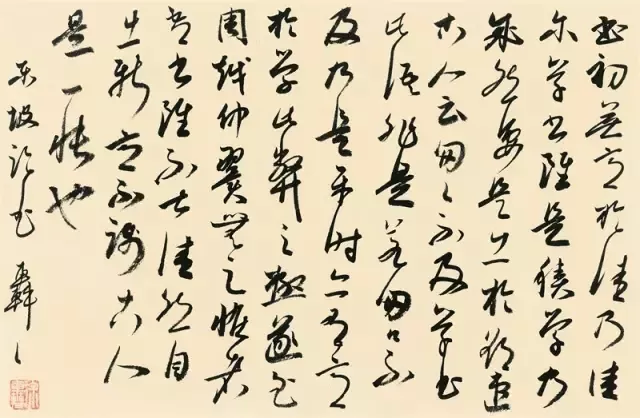 書初無意於佳乃佳
尔草書雖是積學乃
成然要是出於欲速
古人云匆匆不及草書
此語非是若匆匆不
及乃是平時亦有意
於學此弊之極遂至
周越仲翼無足怪者
吾書雖不甚佳然自
出新意不踐古人
是一快也
東坡論書